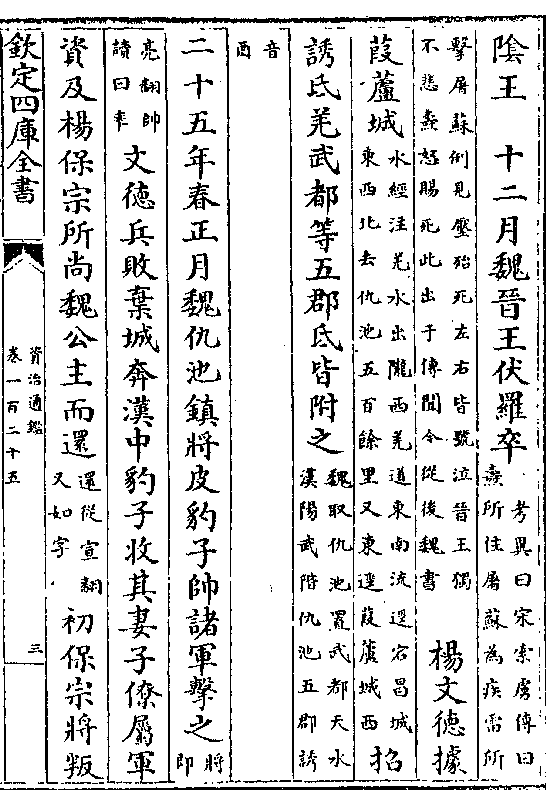 陰王　十二月魏晉王伏羅卒考異曰宋索虜傳曰燾所住屠蘇為疾雷所
擊屠蘇倒見壓殆死左右皆號泣晉王獨不悲燾怒賜死此出于傳聞今從後魏書　楊文德據
葭蘆城水經注羌水出隴西羌道東南流逕宕昌城東西北去仇池五百餘里又東逕葭蘆城西招
誘氐羌武都等五郡氐皆附之魏取仇池置武都天水漢陽武階仇池五郡誘
音酉
二十五年春正月魏仇池鎮將皮豹子帥諸軍擊之將即
亮翻帥讀曰率文德兵敗棄城奔漢中豹子收其妻子僚屬軍
資及楊保宗所尚魏公主而還還從宣翻又如字　初保宗將叛
欽定四庫全書
資治通鑑
卷一百二十五
三